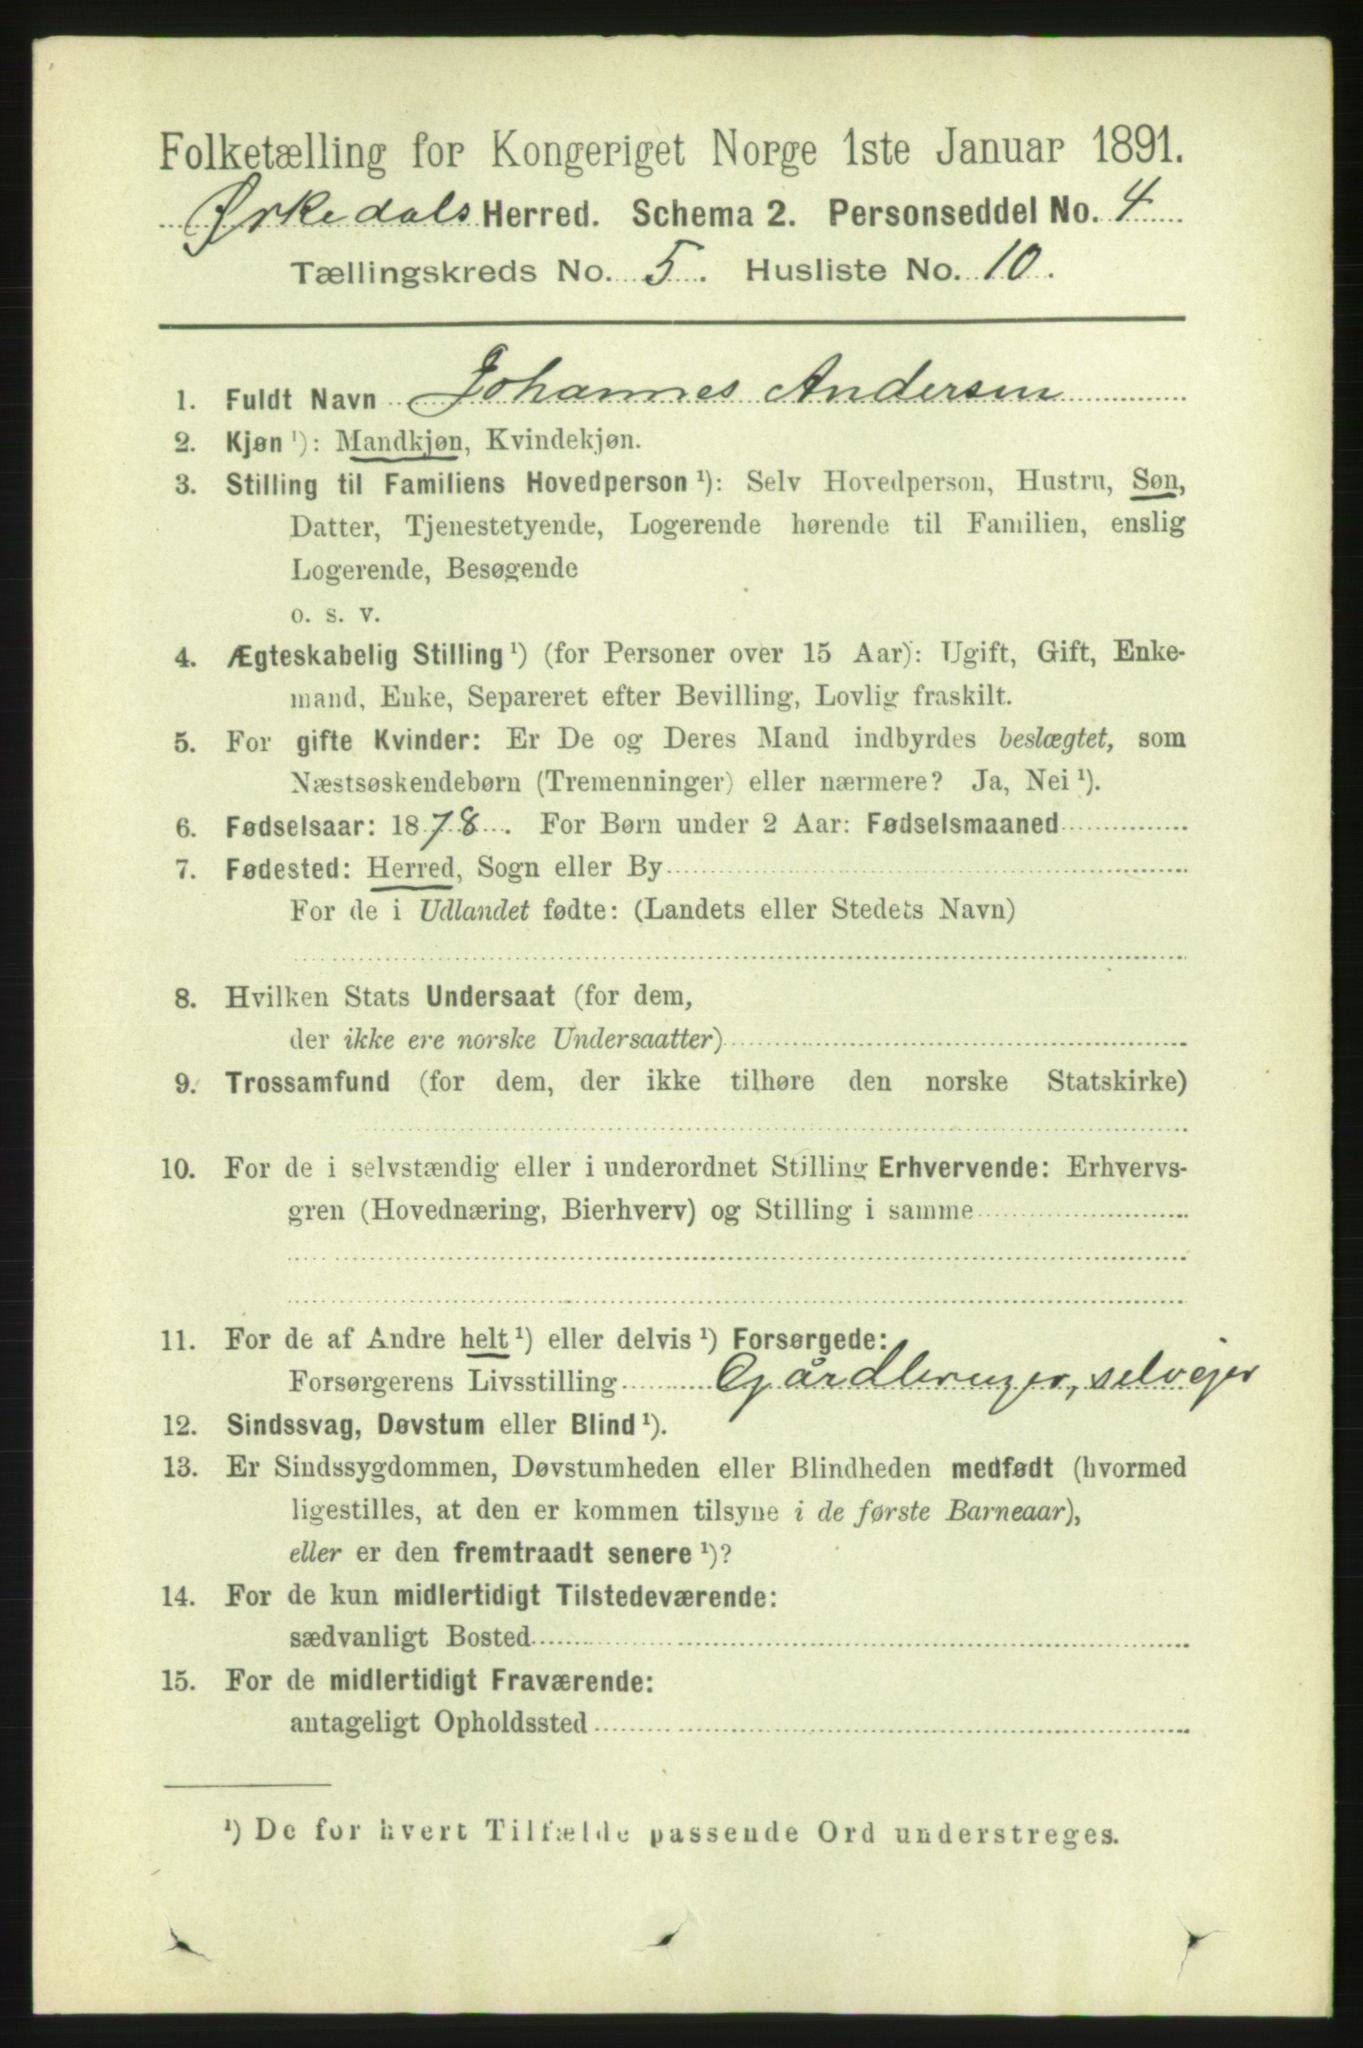 Folketælling for Kongeriget Norge 1ste Januar 1891.
Ørkedals Herred. Schema 2. Personseddel No. 4
Tællingskreds No. 5. Husliste No. 10.
1. Fuldt Navn Johannes Andersen
2. Kjøn ¹): Mandkjøn, Kvindekjøn.
3. Stilling til Familiens Hovedperson ¹): Selv Hovedperson, Hustru, Søn,
Datter, Tjenestetyende, Logerende hørende til Familien, enslig
Logerende, Besøgende
o. s. v.
4. Ægteskabelig Stilling ¹) (for Personer over 15 Aar): Ugift, Gift, Enke-
mand, Enke, Separeret efter Bevilling, Lovlig fraskilt.
5. For gifte Kvinder: Er De og Deres Mand indbyrdes beslægtet, som
Næstsøskendebørn (Tremenninger) eller nærmere? Ja, Nei ¹).
6. Fødselsaar: 1878. For Børn under 2 Aar: Fødselsmaaned
7. Fødested: Herred, Sogn eller By
For de i Udlandet fødte: (Landets eller Stedets Navn)
8. Hvilken Stats Undersaat (for dem,
der ikke ere norske Undersaatter)
9. Trossamfund (for dem, der ikke tilhøre den norske Statskirke)
10. For de i selvstændig eller i underordnet Stilling Erhvervende: Erhvervs-
gren (Hovednæring, Bierhverv) og Stilling i samme
11. For de af Andre helt ¹) eller delvis ¹) Forsørgede:
Forsørgerens Livsstilling Gårdbruger, selvejer
12. Sindssvag, Døvstum eller Blind ¹).
13. Er Sindssygdommen, Døvstumheden eller Blindheden medfødt (hvormed
ligestilles, at den er kommen tilsyne i de første Barneaar),
eller er den fremtraadt senere ¹)?
14. For de kun midlertidigt Tilstedeværende:
sædvanligt Bosted
15. For de midlertidigt Fraværende:
antageligt Opholdssted
¹) De for hvert Tilfælde passende Ord understreges.